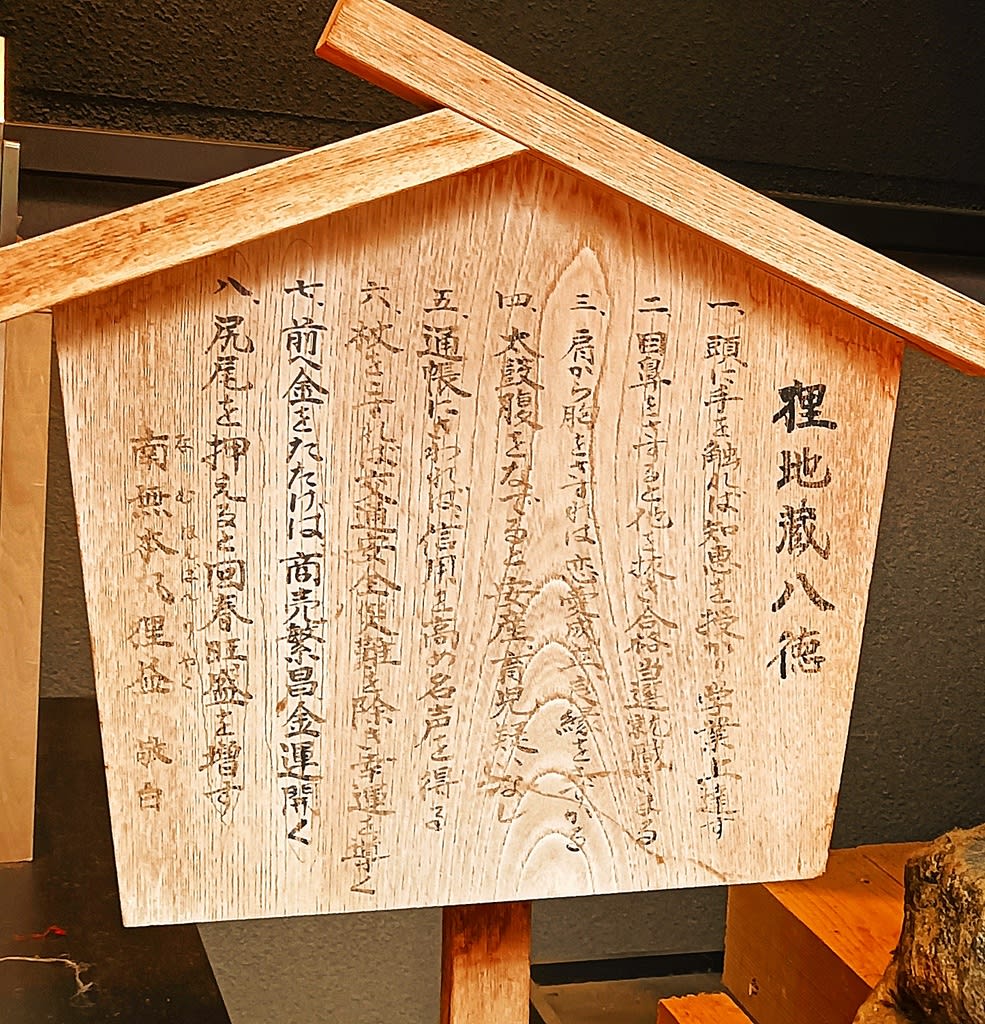 狸地蔵八徳
一、頭に手を触れば知恵を授かり学業上達す
二、目鼻をさすると他を抜き合格当選就職決まる
三、肩から胸をさすれば恋愛成立良縁をさずかる
四、太鼓腹をなずると安産、育児疑いなし
五、通帳にさわれば信用を高め名声を得る
六、被さすれば交通安全災難を除き幸運を導く
七、前へ金をたたけば商売繁昌金運開く
八、尻尾を押えると回春旺盛を増す
なむほんぽんりやく
南無本 狸益 敬白